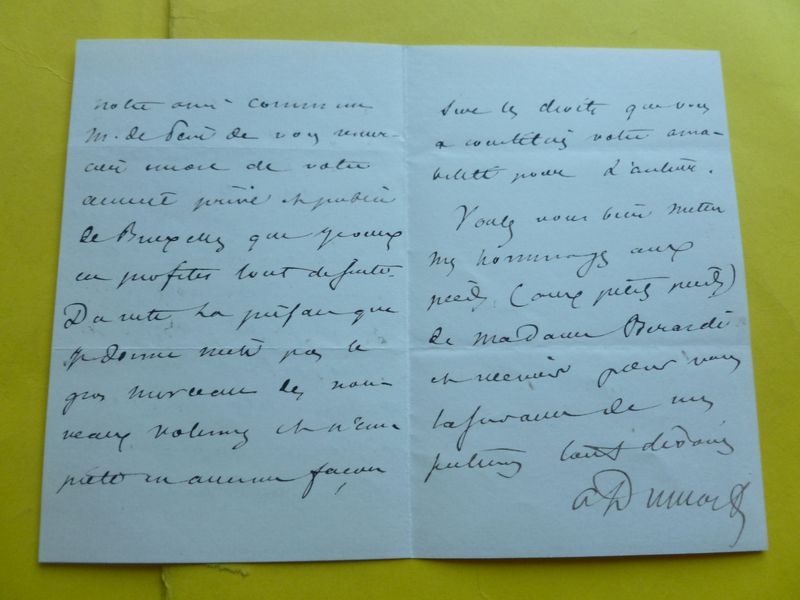 notre ami commun
M. de Pène de vous remer-
cier encore de votre
accueil privé et public
de Bruxelles que je veux
en profiter tout de suite.
Du reste la préface que
je donne n'est pas le
gros morceau des nou-
veaux volumes et n'em-
piète en aucune façon
sur les droits que vous
a constitués votre ama-
bilité pour l'auteur.
Voulez vous bien mettre
mes hommages aux
pieds (aux petits pieds)
de madame Berardi
et recevoir pour vous
l'assurance de mes
sentiments tout dévoués
A Dumas f